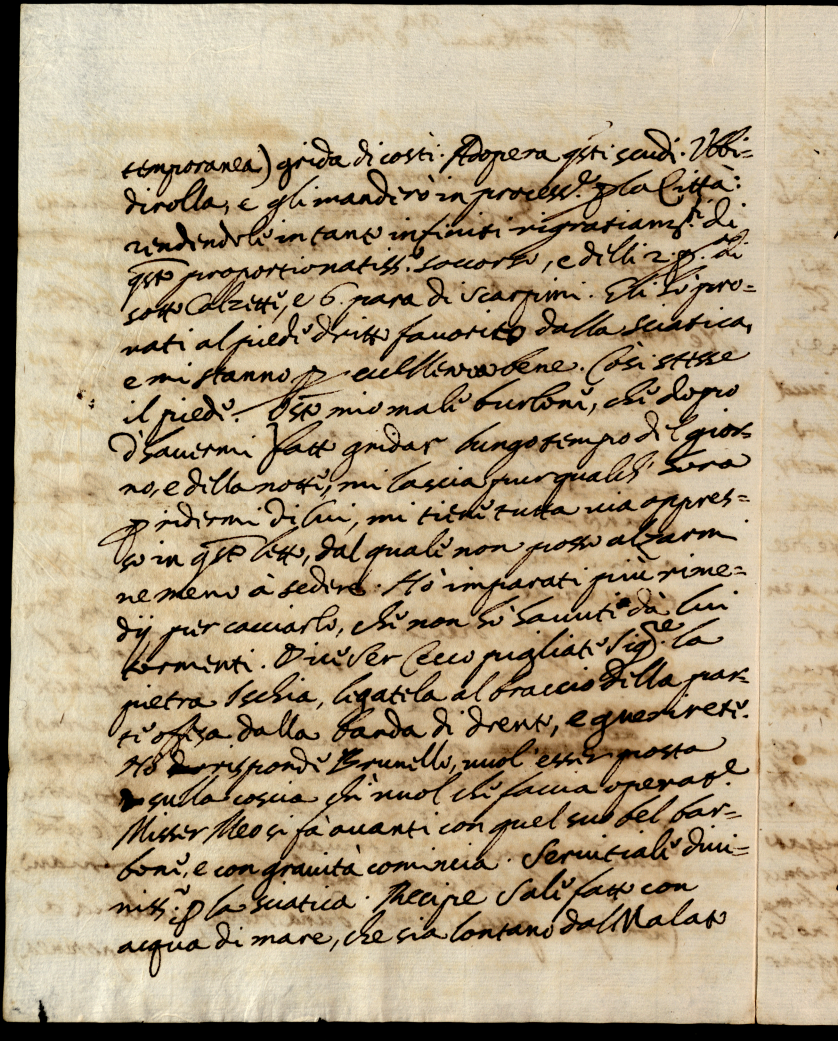 temporanea) grida di costì. Adopera qsti scudi. Vbbi=
dirolla, e gli manderò in process.e p la Città:
rendendole in tanto infiniti rigratiam.ti di
qsto proportionatiss.o soccorso, e delli 2 p.a di
sotto Calzette, e 6. para di scarpini. Gli hò pro=
uati al piede dritto fauorito dalla sciatica,
e mi stanno p eccellenza bene. Così stesse
il piede. Qsto mio male burlone, che dopo
d'hauermi fatto gridar lungo tempo del gior=
no, e della notte, mi lascia pur qualch' hora
p ridermi di lui, mi tiene tutta uia oppres=
so in qsto letto, dal quale non posso alzarmi
ne meno à sedere. Hò imparati più rime=
dij per cacciarlo, che non hò hauuti da lui
tormenti. Dice Ser Cecco pigliate Sig.re la
pietra Ischia, ligatela al braccio della par=
te offesa dalla banda di drento, e guerirete.
Nò risponde Brunello, uuol' esser posta
sulla coscia chi uuol che faccia operat.e
Misser Meo si fà auanti con quel suo bel bar=
bone, e con grauità comincia. Seruitiale diui=
niss.o p la sciatica. Recipe Sale fatto con
acqua di mare, che sia lontano dal Malato